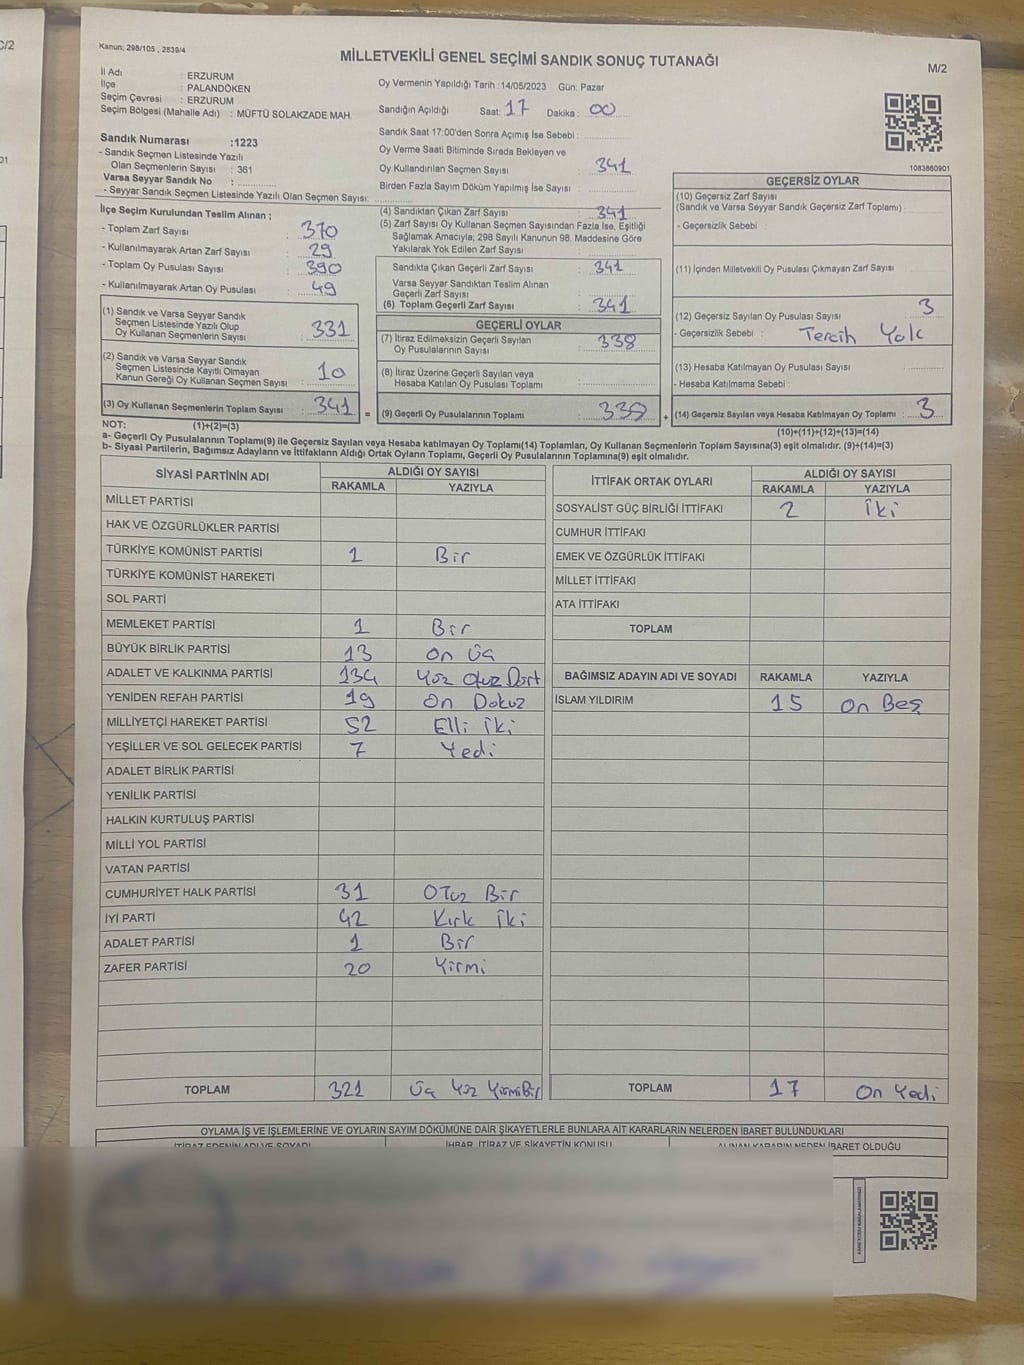 C/2
Kanun; 298/105 , 2839/4
MİLLETVEKİLİ GENEL SEÇİMİ SANDIK SONUÇ TUTANAĞI
M/2
İl Adı : ERZURUM
İlçe : PALANDÖKEN
Seçim Çevresi : ERZURUM
Seçim Bölgesi (Mahalle Adı) : MÜFTÜ SOLAKZADE MAH.
Oy Vermenin Yapıldığı Tarih :14/05/2023 Gün: Pazar
Sandığın Açıldığı Saat: 17 Dakika : 00
Sandık Saat 17:00'den Sonra Açılmış İse Sebebi :
Sandık Numarası :1223
- Sandık Seçmen Listesinde Yazılı
Olan Seçmenlerin Sayısı : 361
Varsa Seyyar Sandık No :
- Seyyar Sandık Seçmen Listesinde Yazılı Olan Seçmen Sayısı:
Oy Verme Saati Bitiminde Sırada Bekleyen ve
Oy Kullandırılan Seçmen Sayısı : 341
Birden Fazla Sayım Döküm Yapılmış İse Sayısı :
1083860901
İlçe Seçim Kurulundan Teslim Alınan ;
- Toplam Zarf Sayısı : 370
- Kullanılmayarak Artan Zarf Sayısı : 29
- Toplam Oy Pusulası Sayısı : 390
- Kullanılmayarak Artan Oy Pusulası : 49
(1) Sandık ve Varsa Seyyar Sandık
Seçmen Listesinde Yazılı Olup
Oy Kullanan Seçmenlerin Sayısı : 331
(2) Sandık ve Varsa Seyyar Sandık
Seçmen Listesinde Kayıtlı Olmayan
Kanun Gereği Oy Kullanan Seçmen Sayısı : 10
(3) Oy Kullanan Seçmenlerin Toplam Sayısı : 341
(1)+(2)=(3)
(4) Sandıktan Çıkan Zarf Sayısı : 341
(5) Zarf Sayısı Oy Kullanan Seçmen Sayısından Fazla İse, Eşitliği
Sağlamak Amacıyla; 298 Sayılı Kanunun 98. Maddesine Göre
Yakılarak Yok Edilen Zarf Sayısı :
Sandıkta Çıkan Geçerli Zarf Sayısı : 341
Varsa Seyyar Sandıktan Teslim Alınan
Geçerli Zarf Sayısı :
(6) Toplam Geçerli Zarf Sayısı : 341
GEÇERLİ OYLAR
(7) İtiraz Edilmeksizin Geçerli Sayılan
Oy Pusulalarının Sayısı : 338
(8) İtiraz Üzerine Geçerli Sayılan veya
Hesaba Katılan Oy Pusulası Toplamı :
= (9) Geçerli Oy Pusulalarının Toplamı : 338 +
GEÇERSİZ OYLAR
(10) Geçersiz Zarf Sayısı
(Sandık ve Varsa Seyyar Sandık Geçersiz Zarf Toplamı) :
- Geçersizlik Sebebi :
(11) İçinden Milletvekili Oy Pusulası Çıkmayan Zarf Sayısı :
(12) Geçersiz Sayılan Oy Pusulası Sayısı : 3
- Geçersizlik Sebebi : Tercih Yok
(13) Hesaba Katılmayan Oy Pusulası Sayısı :
- Hesaba Katılmama Sebebi :
(14) Geçersiz Sayılan veya Hesaba Katılmayan Oy Toplamı : 3
(10)+(11)+(12)+(13)=(14)
NOT:
a- Geçerli Oy Pusulalarının Toplamı(9) ile Geçersiz Sayılan veya Hesaba katılmayan Oy Toplamı(14) Toplamları, Oy Kullanan Seçmenlerin Toplam Sayısına(3) eşit olmalıdır. (9)+(14)=(3)
b- Siyasi Partilerin, Bağımsız Adayların ve İttifakların Aldığı Ortak Oyların Toplamı, Geçerli Oy Pusulalarının Toplamına(9) eşit olmalıdır.
SİYASİ PARTİNİN ADI ALDIĞI OY SAYISI
RAKAMLA YAZIYLA
MİLLET PARTİSİ
HAK VE ÖZGÜRLÜKLER PARTİSİ
TÜRKİYE KOMÜNİST PARTİSİ 1 Bir
TÜRKİYE KOMÜNİST HAREKETİ
SOL PARTİ
MEMLEKET PARTİSİ 1 Bir
BÜYÜK BİRLİK PARTİSİ 13 On Üç
ADALET VE KALKINMA PARTİSİ 134 Yüz Otuz Dört
YENİDEN REFAH PARTİSİ 19 On Dokuz
MİLLİYETÇİ HAREKET PARTİSİ 52 Elli İki
YEŞİLLER VE SOL GELECEK PARTİSİ 7 Yedi
ADALET BİRLİK PARTİSİ
YENİLİK PARTİSİ
HALKIN KURTULUŞ PARTİSİ
MİLLİ YOL PARTİSİ
VATAN PARTİSİ
CUMHURİYET HALK PARTİSİ 31 Otuz Bir
İYİ PARTİ 42 Kırk İki
ADALET PARTİSİ 1 Bir
ZAFER PARTİSİ 20 Yirmi
TOPLAM 321 Üç Yüz YirmiBir
İTTİFAK ORTAK OYLARI ALDIĞI OY SAYISI
RAKAMLA YAZIYLA
SOSYALİST GÜÇ BİRLİĞİ İTTİFAKI 2 İki
CUMHUR İTTİFAKI
EMEK VE ÖZGÜRLÜK İTTİFAKI
MİLLET İTTİFAKI
ATA İTTİFAKI
TOPLAM
BAĞIMSIZ ADAYIN ADI VE SOYADI RAKAMLA YAZIYLA
İSLAM YILDIRIM 15 On Beş
TOPLAM 17 On Yedi
OYLAMA İŞ VE İŞLEMLERİNE VE OYLARIN SAYIM DÖKÜMÜNE DAİR ŞİKAYETLERLE BUNLARA AİT KARARLARIN NELERDEN İBARET BULUNDUKLARI
İTİRAZ EDENİN ADI VE SOYADI İHBAR, İTİRAZ VE ŞİKAYETİN KONUSU ALINAN KARARIN NEDEN İBARET OLDUĞU